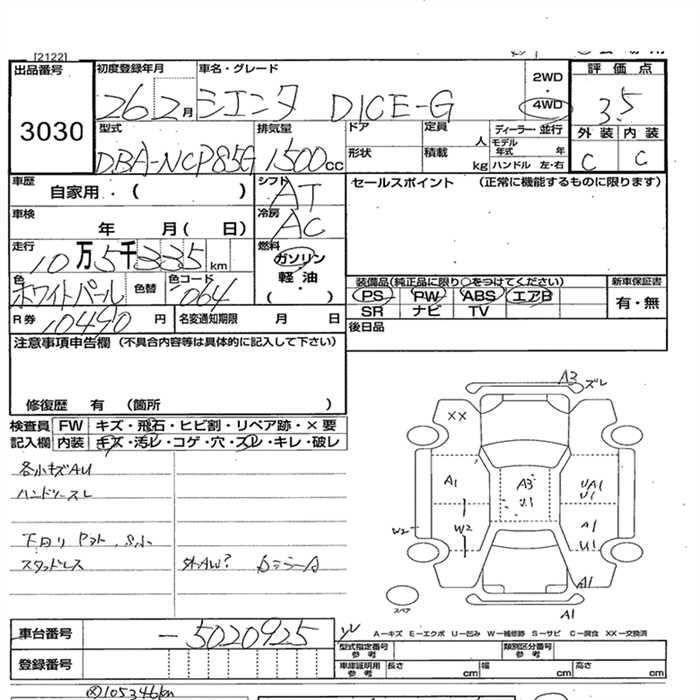 [2122]
出品番号
3030
初度登録年月
26 2月
車名・グレード
シエンタ DICE-G
2WD
・
4WD
評価点
3.5
外装 内装
C C
型式
DBA-NCP85G
排気量
1500cc
ドア
形状
定員
人
積載
kg
ディーラー・並行
モデル年式 年
ハンドル 左・右
車歴
自家用・( )
シフト
AT
車検
年 月( 日)
冷房
AC
走行
10万5千335km
燃料
ガソリン
軽油
( )
色
ホワイトパール
色替
色コード
064
R券
10490円
名変通知期限 月 日
セールスポイント (正常に機能するものに限ります)
装備品(純正品に限り○をつけてください)
PS PW ABS エアB
SR ナビ TV
新車保証書
有・無
後日品
注意事項申告欄(不具合内容等は具体的に記入して下さい)
修復歴 有 (箇所 )
検査員記入欄
FW キズ・飛石・ヒビ割・リペア跡・×要
内装 キズ・汚レ・コゲ・穴・スレ・キレ・破レ
各小キズAU
ハンドルスレ
下回り
スタッドレス
外AW?
A3 ズレ
XX
A1
A3
U1
UA1
U1
W2
W2
A1
U1
A1
A1
スペア
A-キズ E-エクボ U-凹み W-補修跡 S-サビ C-腐食 XX-交換済
車台番号
-5020925
登録番号
型式指定番号
参考
類別区分番号
参考
車庫証明用
参考
長さ cm
幅 cm
高さ cm
105346km